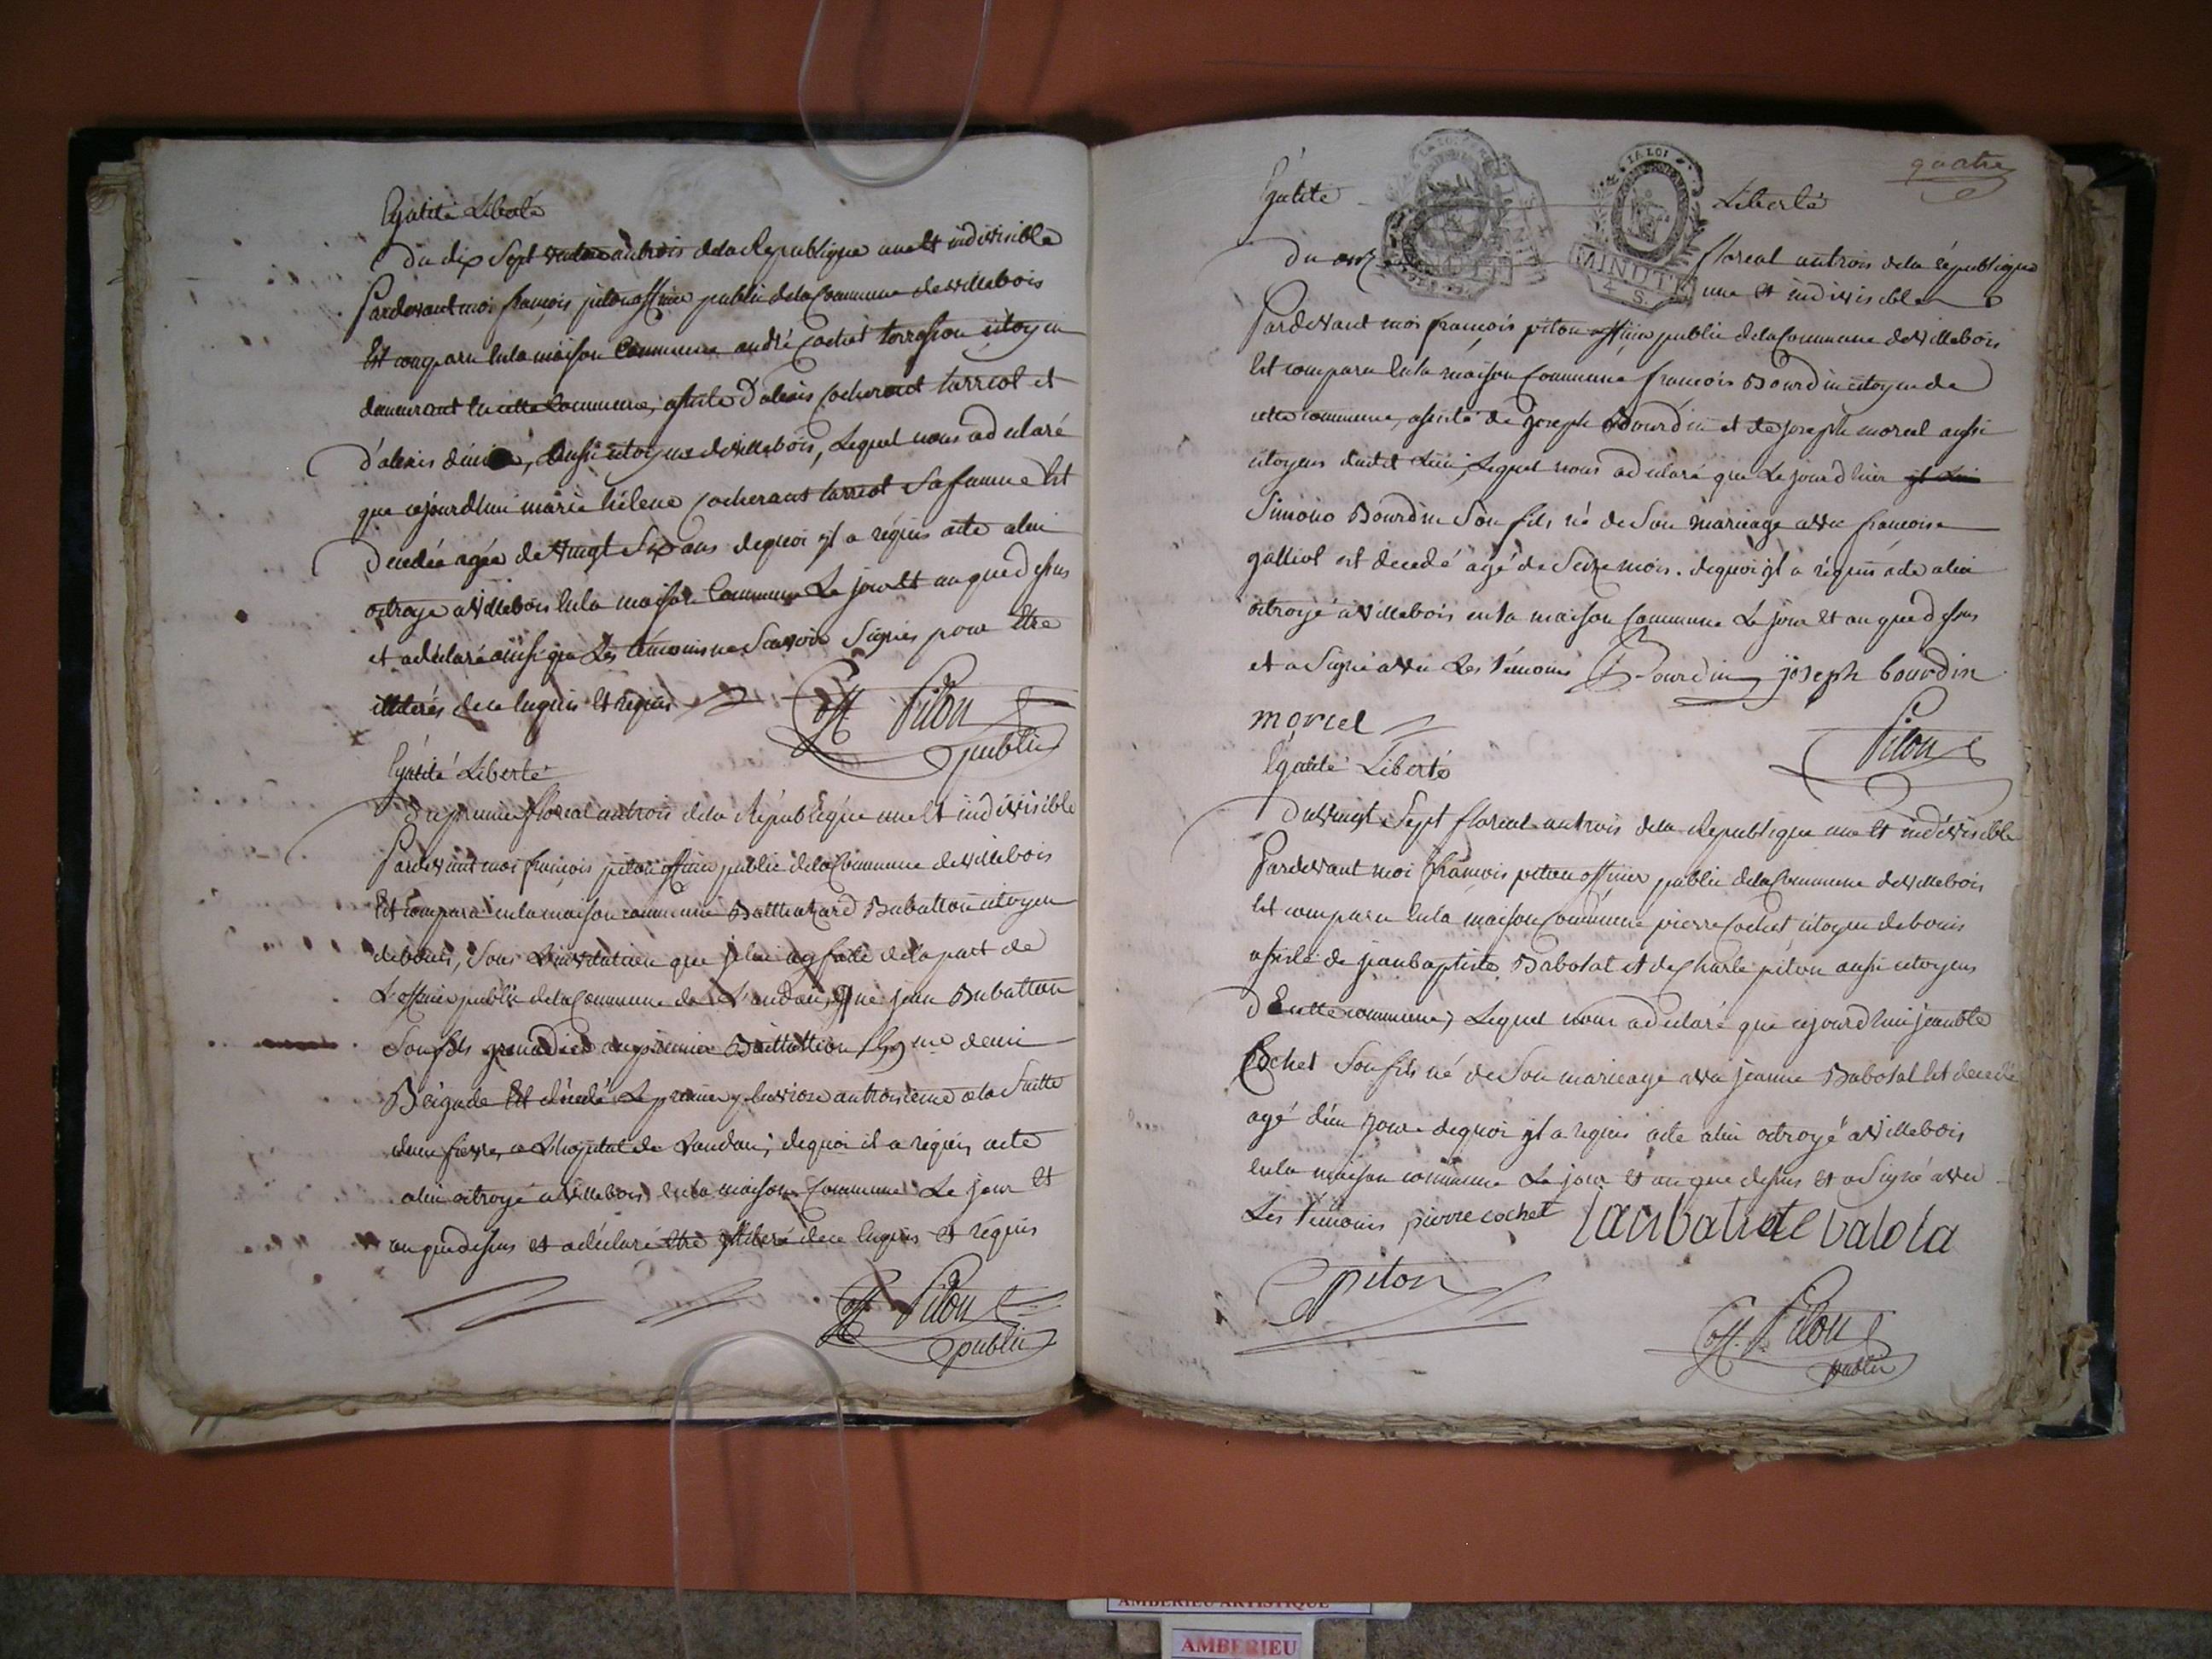 Egalité Liberté
Du dix Sept antrois dela Republique une et indivisible
Pardevant moi françois piton officier public dela Commune de villebois
Est comparu enla maison Commune andré Cochet torrasson citoyen
demeurant en cette Commune, assisté d'alexis Cocherant tarriot et
d'alexis aussi citoyens de villebois, Lequel nous adeclaré
que cejourdhui marie hélene Cocherant tarriot Sa femme Est
Decedée agée de vingt Six ans dequoi jl a réquis acte alui
octroyé a villebois enla maison Commune Le jour et an que dessus
et adéclaré ainsi que Les témoins ne Savoir Signés pour être
illiterés de ce Enquis et réquis
Off Piton
public
Egalité Liberté
Du premier floréal antrois dela République une et indivisible
Pardevant moi françois piton officier public dela Commune de villebois
Est comparu enla maison commune Balthazard Babatton citoyen
debouis, Sous L'invitation que je lui ay faite dela part de
L'officier public dela Commune de Landau, que jean Bubatton
Son fils grenadier au premier Battaillion 159me demi
Brigade Est décédé Le premier pluviose an troisième ala Suitte
dune fievre, a L'hopital de Landau; dequoi il a réquis acte
alui octroyé a villebois enla maison Commune Le jour et
an que dessus et adéclaré être jlliteré de ce Enquis et réquis
Off Piton
public
quatre
Egalité Liberté
LA LOI LA LOI
MINUTE
4 S.
Du onz floreal antrois dela république
une et indivisible
Pardevant moi françois piton officier public dela Commune de villebois
Est comparu enla maison Commune françois Bourdin citoyen de
cette commune, assisté de joseph Bourdin et de joseph morel aussi
citoyens dudit Lieu, Lequel nous adeclaré que Le jourd'hier
Simond Bourdin Son fils né de Son mariage avec françoise
galliot est decedé agé de Seize mois. dequoi jl a réquis acte alui
octroyé a villebois enla maison Commune Le jour et an que dessus
et a Signé avec Les témoins Bourdin joseph bourdin
morel Piton
Egalité Liberté
Du vingt Sept floreal antrois dela Republique une et indivisible
Pardevant moi françois piton officier public dela Commune de villebois
Est comparu enla maison Commune pierre Cochet citoyen debouis
assisté de jeanbaptiste Babolat et de Charle piton aussi citoyens
de cette commune, Lequel nous adeclaré que cejourdhui jean
Cochet Son fils né de Son mariage avec jeanne Babolat Est decedé
agé d'un jour dequoi jl a réquis acte alui octroyé a villebois
enla maison commune Le jour et an que dessus et a Signé avec
Les témoins pierre cochet
piton
Off. Piton
public
AMBERIEU ARTISTIQUE
AMBERIEU